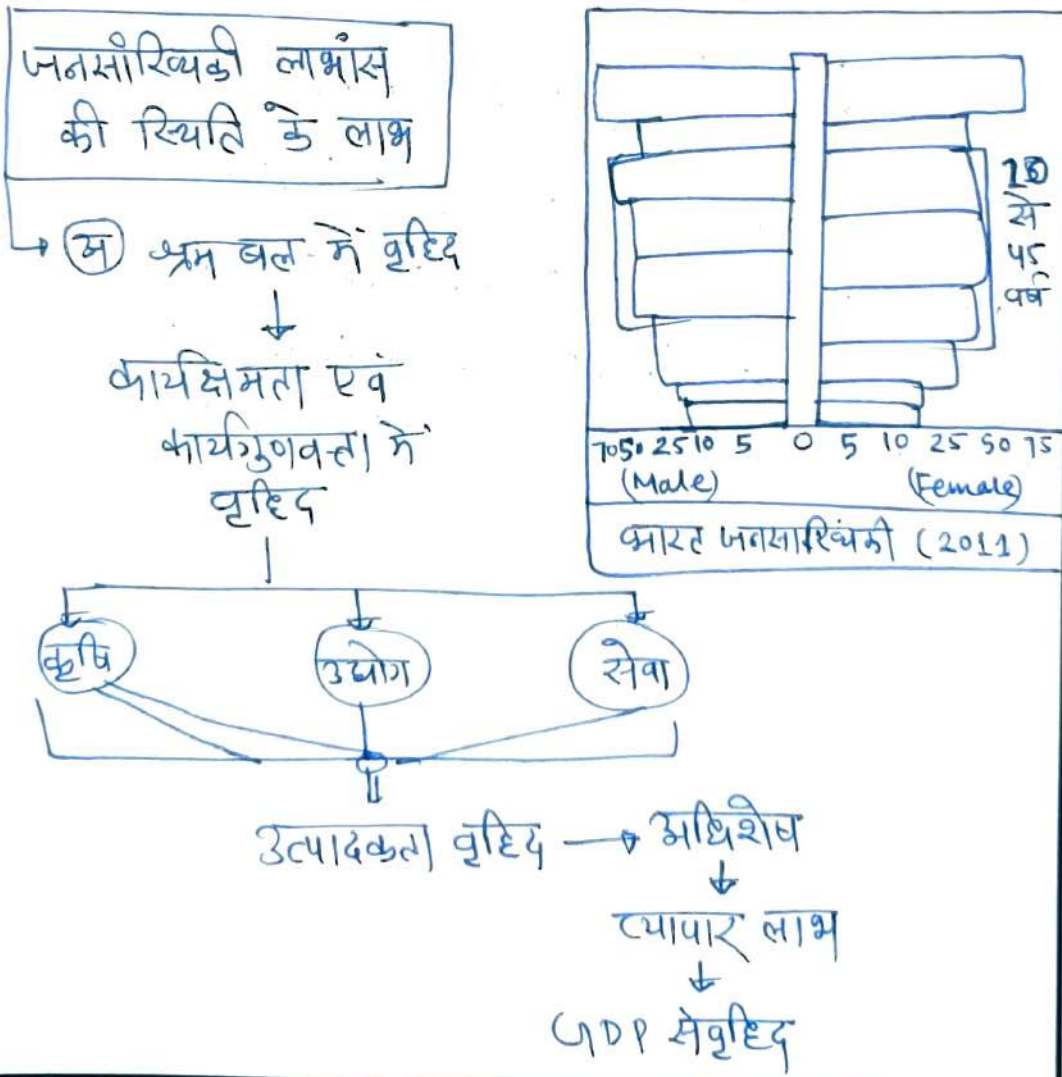 जनसांख्यिकी लाभांस
की स्थिति के लाभ
अ श्रम बल में वृद्धि
कार्यक्षमता एवं
कार्यगुणवत्ता में
वृद्धि
कृषि उद्योग सेवा
उत्पादकता वृद्धि → अधिशेष
व्यापार लाभ
GDP में वृद्धि
से
45
वर्ष
70 50 25 10 5 0 5 10 25 50 75
(Male) (Female)
भारत जनसांख्यिकी (2011)